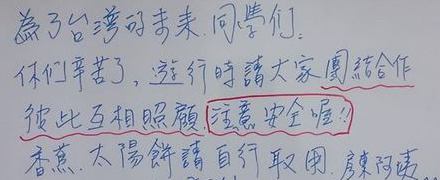 為了台灣的未來.同學們.
你们辛苦了,遊行時請大家團結合作
彼此互相照顧.注意安全喔!!
香蕉.太陽餅請自行取用.廖阿姨